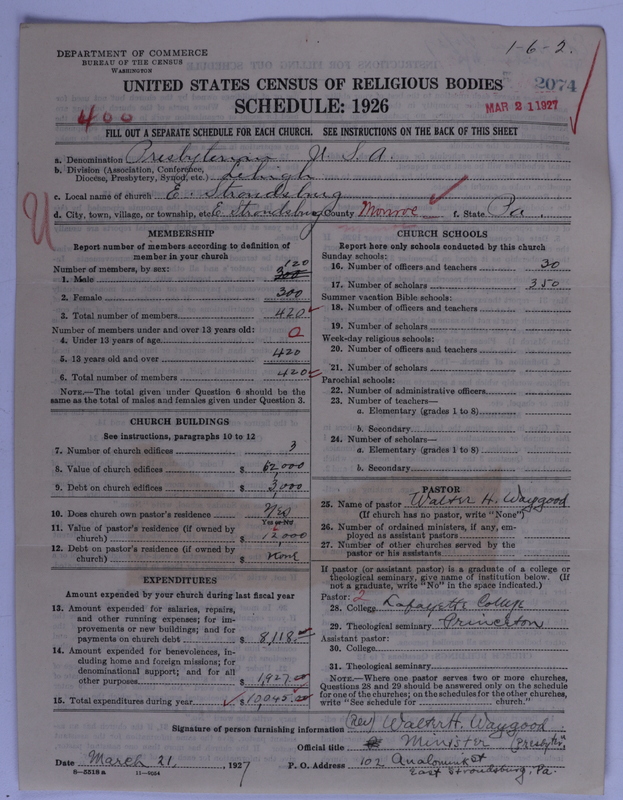 DEPARTMENT OF COMMERCE
BUREAU OF THE CENSUS
WASHINGTON
1-6-2.
UNITED STATES CENSUS OF RELIGIOUS BODIES
2074
SCHEDULE: 1926
MAR 21 1927
400
FILL OUT A SEPARATE SCHEDULE FOR EACH CHURCH. SEE INSTRUCTIONS ON THE BACK OF THIS SHEET
a. Denomination Presbyterian U. S. A.
b. Division (Association, Conference, Diocese, Presbytery, Synod, etc.) Lehigh
c. Local name of church E. Stroudsburg
d. City, town, village, or township, etc. E. Stroudsburg County Monroe f. State Pa.
MEMBERSHIP
Report number of members according to definition of
member in your church
Number of members, by sex:
120
1. Male 300
2. Female 300
3. Total number of members 420
Number of members under and over 13 years old:
4. Under 13 years of age 0
5. 13 years old and over 420
6. Total number of members 420
NOTE.—The total given under Question 6 should be
same as the total of males and females given under Question 3.
CHURCH BUILDINGS
See instructions, paragraphs 10 to 12
7. Number of church edifices 3
8. Value of church edifices $ 62,000
9. Debt on church edifices $ 3,000
10. Does church own pastor's residence Yes
Yes or No
11. Value of pastor's residence (if owned by
church) $ 12,000
12. Debt on pastor's residence (if owned by
church) $ None
EXPENDITURES
Amount expended by your church during last fiscal year
13. Amount expended for salaries, repairs,
and other running expenses; for im-
provements or new buildings; and for
payments on church debt $ 8,118.00
14. Amount expended for benevolences, in-
cluding home and foreign missions; for
denominational support; and for all
other purposes $ 1,927.00
15. Total expenditures during year $ 10,045.00
CHURCH SCHOOLS
Report here only schools conducted by this church
Sunday schools:
16. Number of officers and teachers 30
17. Number of scholars 350
Summer vacation Bible schools:
18. Number of officers and teachers
19. Number of scholars
Week-day religious schools:
20. Number of officers and teachers
21. Number of scholars
Parochial schools:
22. Number of administrative officers
23. Number of teachers—
a. Elementary (grades 1 to 8)
b. Secondary
24. Number of scholars—
a. Elementary (grades 1 to 8)
b. Secondary
PASTOR
25. Name of pastor Walter H. Waygood
(If church has no pastor, write "None")
26. Number of ordained ministers, if any, em-
ployed as assistant pastors
27. Number of other churches served by the
pastor or his assistants
If pastor (or assistant pastor) is a graduate of a college or
theological seminary, give name of institution below. (If
not a graduate, write "No" in the space indicated.)
Pastor: 2
28. College Lafayette College
29. Theological seminary Princeton
Assistant pastor:
30. College
31. Theological seminary
NOTE.—Where one pastor serves two or more churches,
Questions 28 and 29 should be answered only on the schedule
for one of the churches; on the schedules for the other churches,
write "See schedule for church."
Signature of person furnishing information (Rev) Walter H. Waygood
Official title Minister (Presbytn)
Date March 21, 1927 P. O. Address 102 Analomink St
East Stroudsburg, Pa.
8-5518 a 11-9034